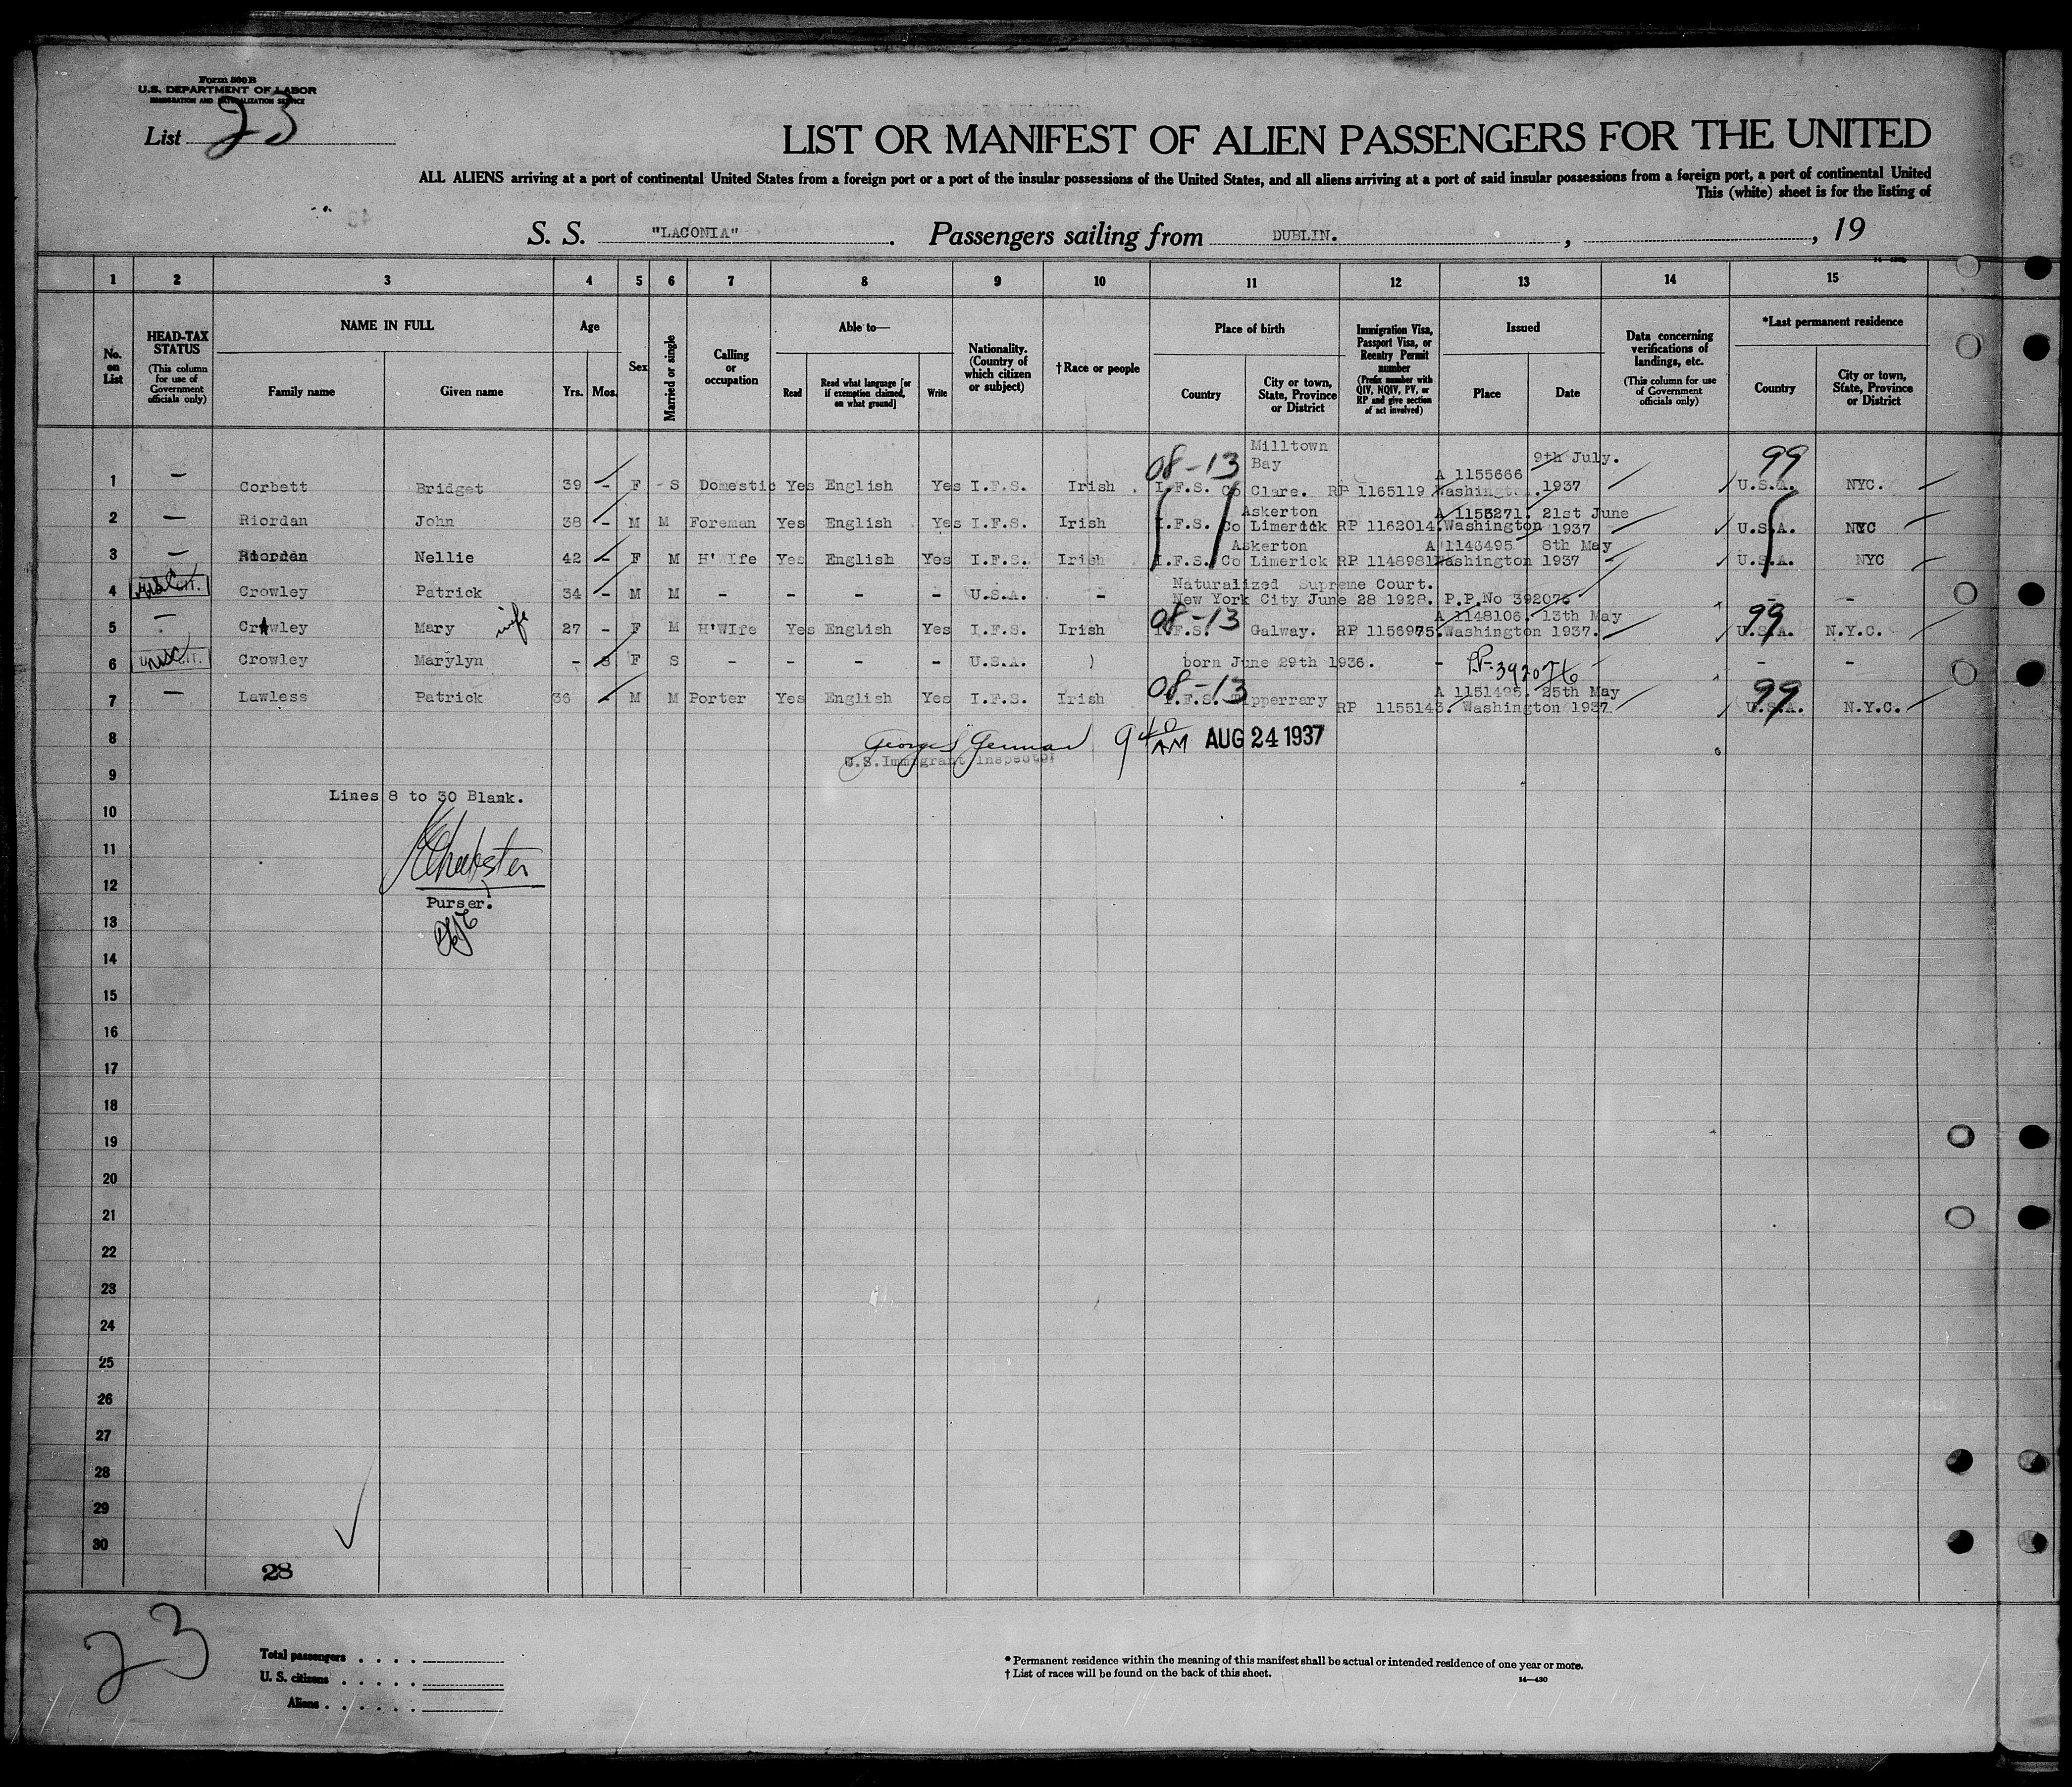 Form 500 B
U.S. DEPARTMENT OF LABOR
IMMIGRATION AND NATURALIZATION SERVICE
List 23
LIST OR MANIFEST OF ALIEN PASSENGERS FOR THE UNITED
ALL ALIENS arriving at a port of continental United States from a foreign port or a port of the insular possessions of the United States, and all aliens arriving at a port of said insular possessions from a foreign port, a port of continental United
This (white) sheet is for the listing of
S. S. "LACONIA" . Passengers sailing from DUBLIN. , , 19
1 2 3 4 5 6 7 8 9 10 11 12 13 14 15
No. on List
HEAD-TAX STATUS (This column for use of Government officials only)
NAME IN FULL Family name Given name
Age Yrs. Mos.
Sex
Married or single
Calling or occupation
Able to— Read Read what language [or if exemption claimed, on what ground] Write
Nationality. (Country of which citizen or subject)
†Race or people
Place of birth Country City or town, State, Province or District
Immigration Visa, Passport Visa, or Reentry Permit number (Prefix number with QIV, NQIV, PV, or RP and give section of act involved)
Issued Place Date
Data concerning verifications of landings, etc. (This column for use of Government officials only)
*Last permanent residence Country City or town, State, Province or District
08-13 Milltown Bay 9th July. 99
1 – Corbett Bridget 39 - F S Domestic Yes English Yes I.F.S. Irish I.F.S. Co Clare. RP 1165119 A 1155666 Washington. 1937 U.S.A. NYC.
2 – Riordan John 38 - M M Foreman Yes English Yes I.F.S. Irish I.F.S. Askerton Co Limerick RP 1162014. A 1153271. Washington 21st June 1937 U.S.A. NYC
3 – Riordan Nellie 42 - F M H'WIfe Yes English Yes I.F.S. Irish I.F.S. Askerton Co Limerick RP 1148981 A 1143495 Washington 8th May 1937 U.S.A. NYC
4 Crowley Patrick 34 - M M - - - - U.S.A. - Naturalized Supreme Court. New York City June 28 1928. P.P.No 392076 - -
08-13 99
5 - Crowley Mary wife 27 - F M H'WIfe Yes English Yes I.F.S. Irish I.F.S. Galway. RP 1156975. A 1148106. Washington 13th May 1937. U.S.A. N.Y.C.
6 Crowley Marylyn - 8 F S - - - - U.S.A. ) born June 29th 1936. - P.P. 392076 - - -
08-13 99
7 – Lawless Patrick 36 - M M Porter Yes English Yes I.F.S. Irish I.F.S. Tipperrary RP 1155143. A 1151495. Washington 25th May 1937 U.S.A. N.Y.C.
8 George German 9 40 AM AUG 24 1937
U.S.Immigrant Inspector
9
Lines 8 to 30 Blank.
10
11
12
Purser.
13
14
15
16
17
18
19
20
21
22
23
24
25
26
27
28
29
30
28
23
Total passengers . . . .
U. S. citizens . . . . .
Aliens . . . . . .
* Permanent residence within the meaning of this manifest shall be actual or intended residence of one year or more.
† List of races will be found on the back of this sheet.
14—430